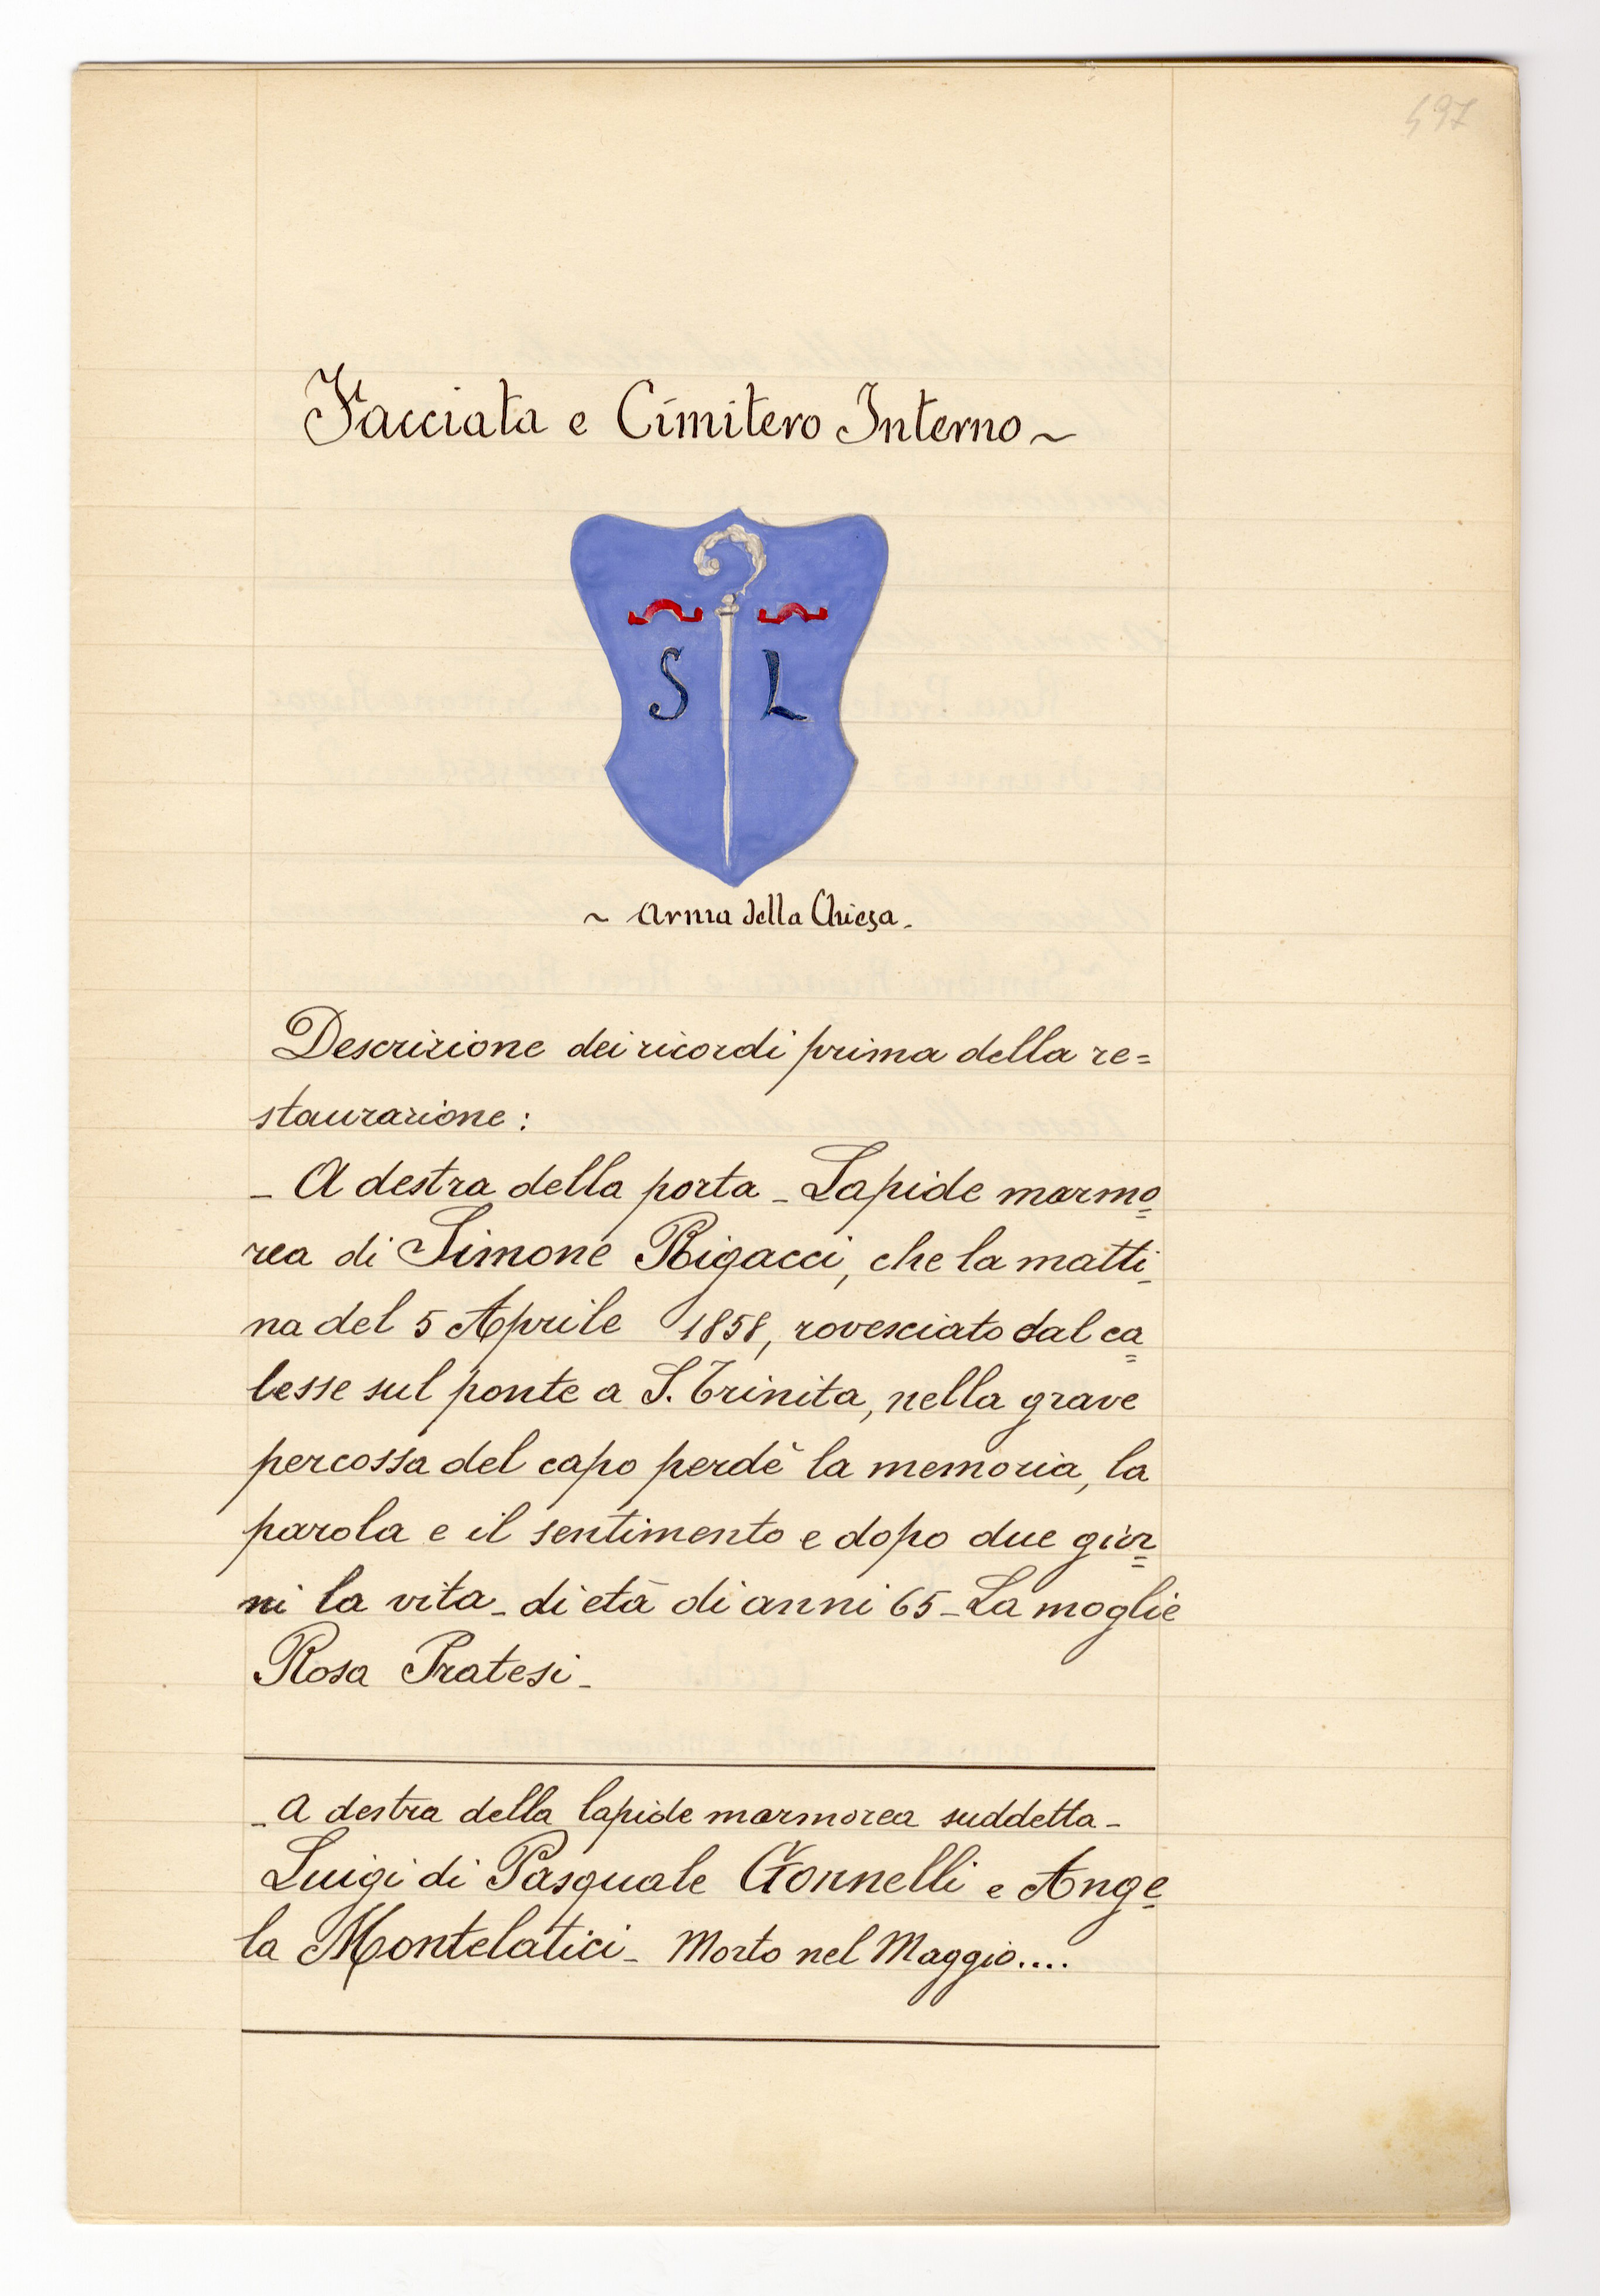 497
Facciata e Cimitero Interno ~
S L
~ Arma della Chiesa.
Descrizione dei ricordi prima della re=
staurazione:
- A destra della porta - Lapide marmo=
rea di Simone Rigacci, che la matti-
na del 5 Aprile 1858, rovesciato dal ca=
lesse sul ponte a S. Trinita, nella grave
percossa del capo perdè la memoria, la
parola e il sentimento e dopo due gior=
ni la vita - di età di anni 65 - La moglie
Rosa Pratesi -
- A destra della lapide marmorea suddetta -
Luigi di Pasquale Gonnelli e Ange-
la Montelatici - Morto nel Maggio....